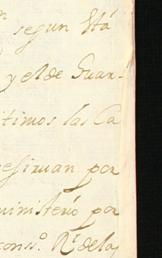 n segun Está
y el de Guar-
itimos las Ca
resiruan por
ministerio por
cons.º R.l de las